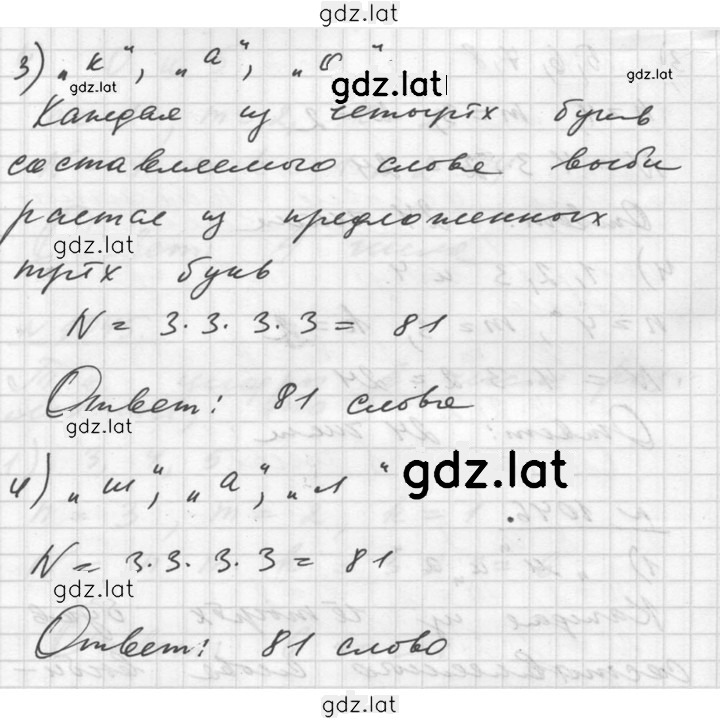 gdz.lat
3) „к“, „а“, „
gdz.lat gdz.lat gdz.lat
Каждая из четырёх букв
составляемого слова выби
рается из предложенных
gdz.lat
трёх букв
N = 3·3·3·3 = 81
Ответ: 81 слово
gdz.lat
4) „ш“, „а“, „л“ gdz.lat
N = 3·3·3·3 = 81
gdz.lat
Ответ: 81 слово
gdz.lat
gdz.lat